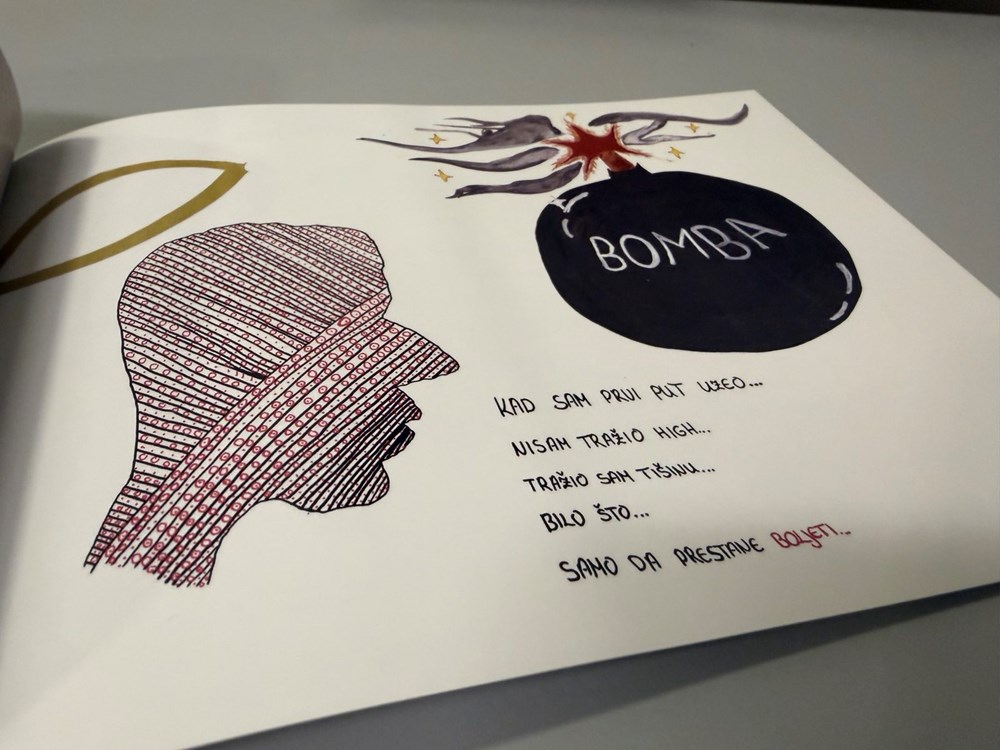 BOMBA
KAD SAM PRVI PUT UZEO...
NISAM TRAŽIO HIGH...
TRAŽIO SAM TIŠINU...
BILO ŠTO...
SAMO DA PRESTANE BOLJETI...